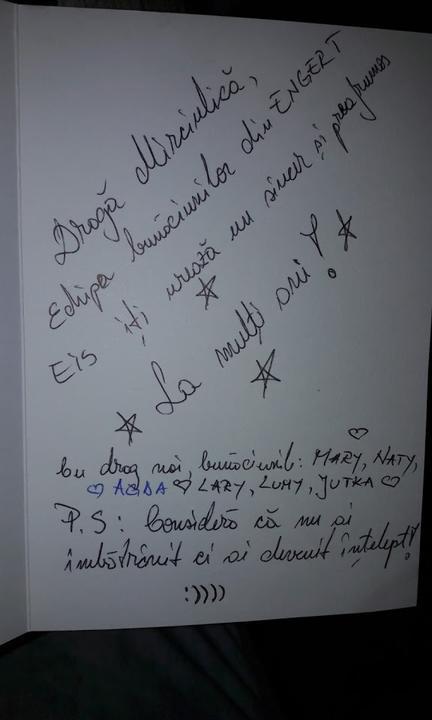 Dragă Mirciulică,
Echipa bunăciunilor din ENGERT
EIS îți urează un sincer și preafrumos
La mulți ani!
Cu drag noi, bunăciunile: MARY, NATY,
♡ AGDA ♡ LARY, LUMY, JUTKA ♡
P.S: Consideră că nu ai
îmbătrânit ci ai devenit înțelept!
:))))